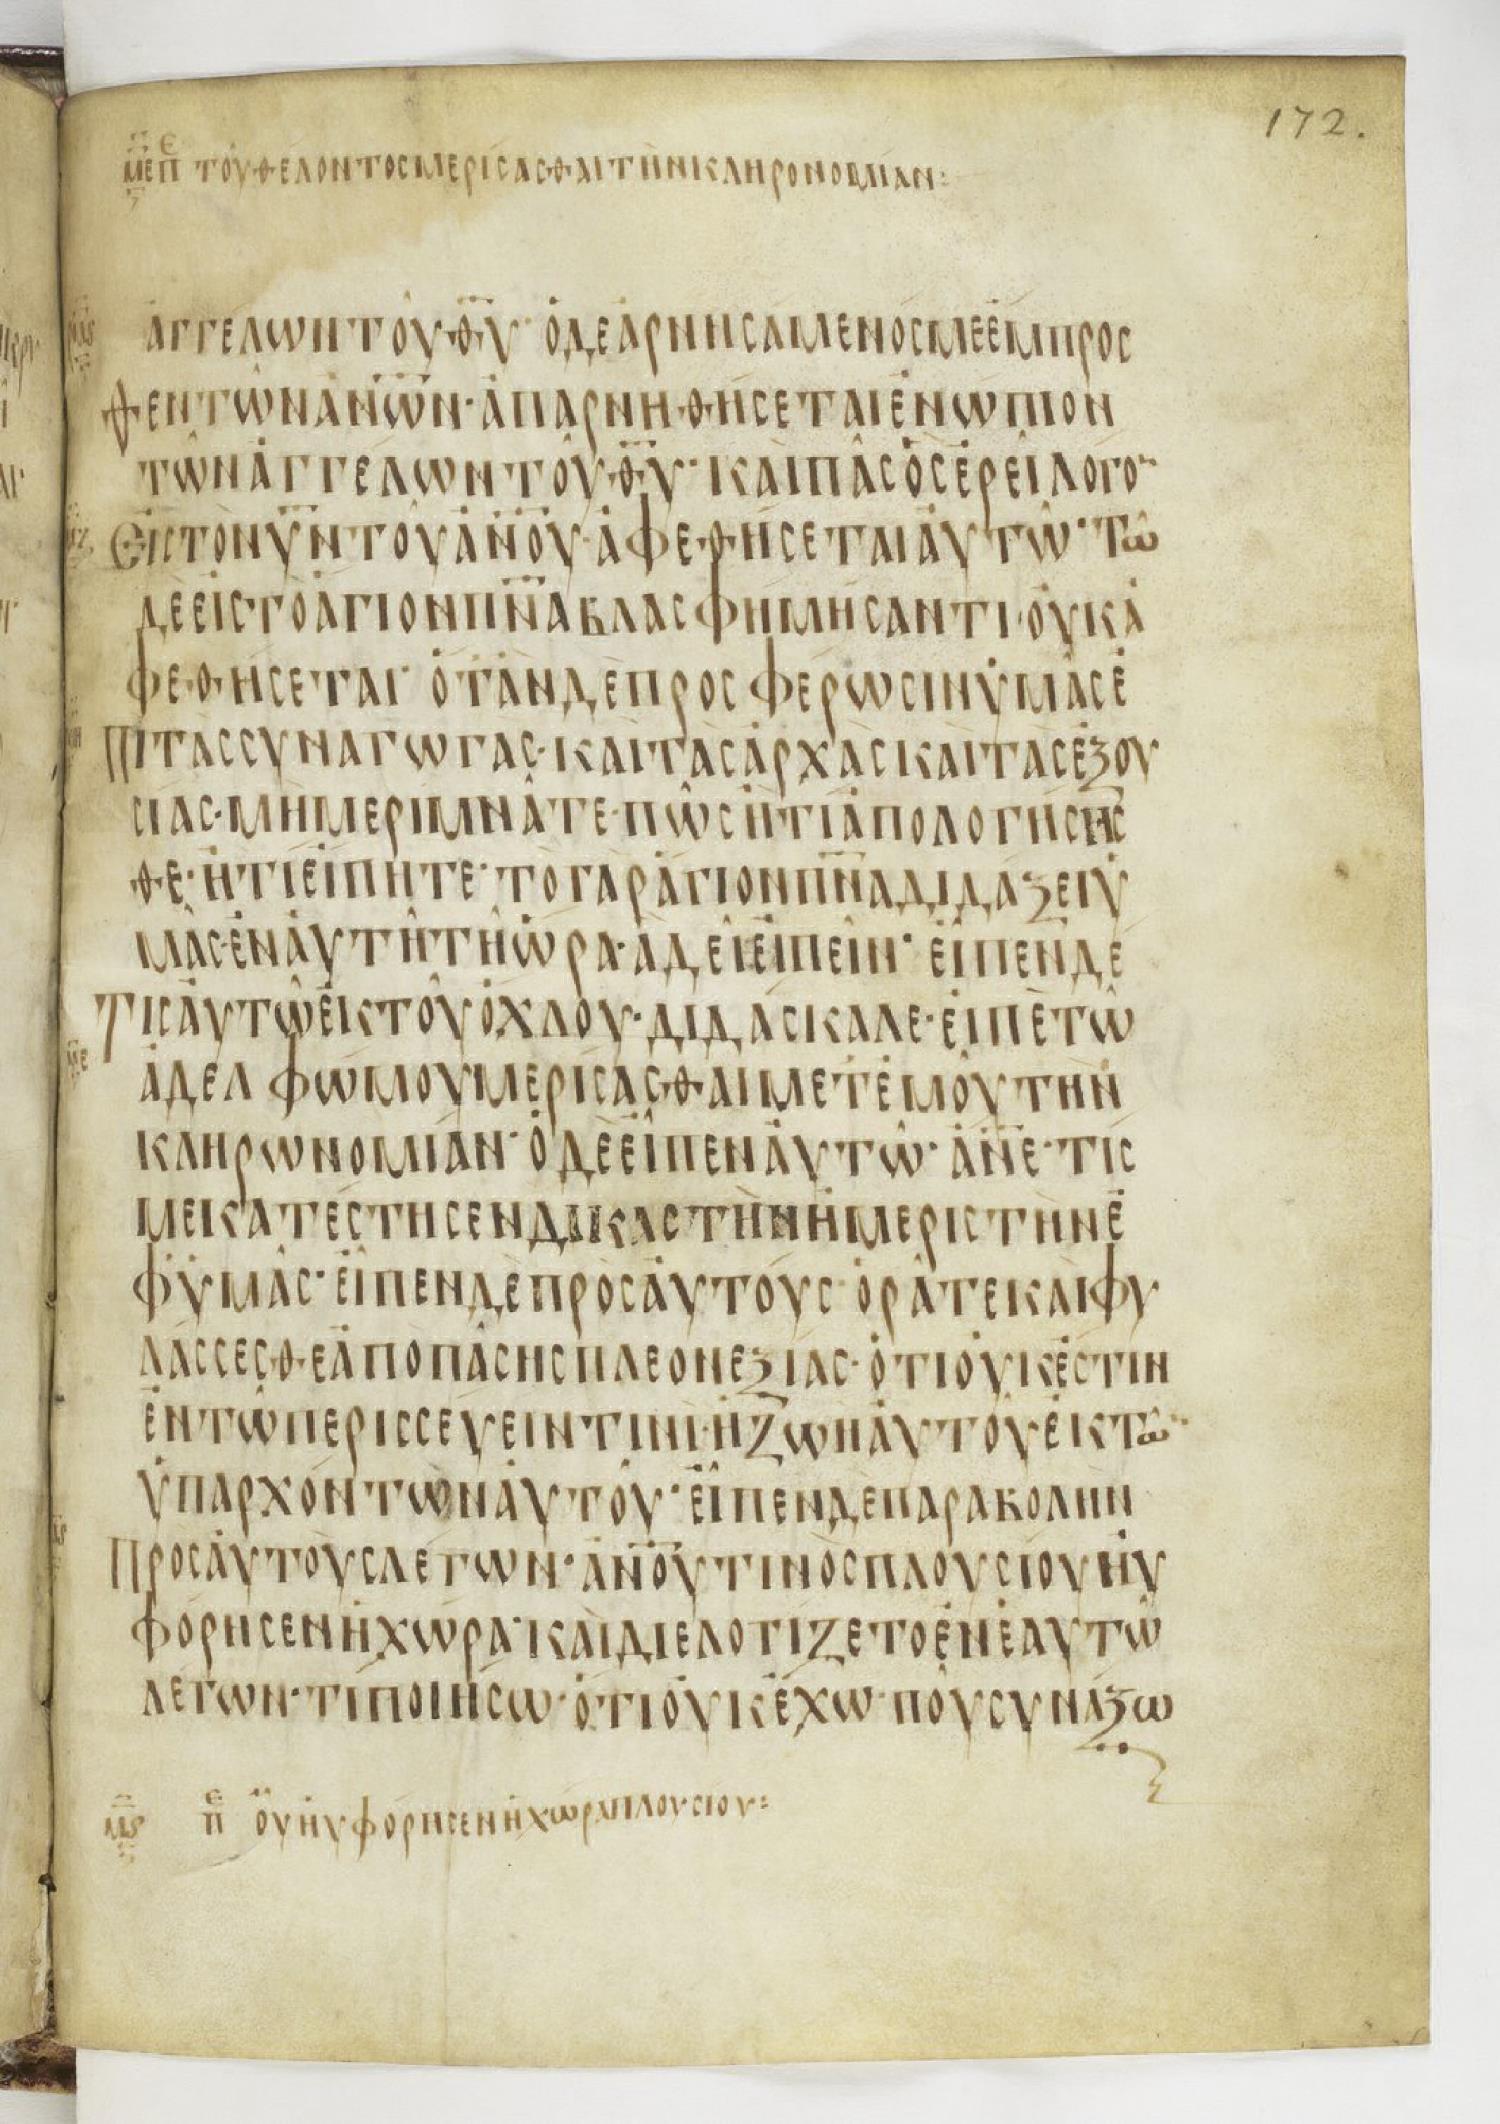 172.
ΜΕ ΠΕ ΤΟΥ ΘΕΛΟΝΤΟΣ ΜΕΡΙΣΑΣΘΑΙ ΤΗΝ ΚΛΗΡΟΝΟΜΙΑΝ:
ΑΓΓΕΛΩΝ ΤΟΥ ΘΥ· Ο ΔΕ ΑΡΝΗΣΑΜΕΝΟΣ ΜΕ ΕΜΠΡΟΣ
ΘΕΝ ΤΩΝ ΑΝΩΝ· ΑΠΑΡΝΗΘΗΣΕΤΑΙ ΕΝΩΠΙΟΝ
ΤΩΝ ΑΓΓΕΛΩΝ ΤΟΥ ΘΥ· ΚΑΙ ΠΑΣ ΟΣ ΕΡΕΙ ΛΟΓΟ
ΕΙΣ ΤΟΝ ΥΝ ΤΟΥ ΑΝΟΥ· ΑΦΕΘΗΣΕΤΑΙ ΑΥΤΩ· ΤΩ
ΔΕ ΕΙΣ ΤΟ ΑΓΙΟΝ ΠΝΑ ΒΛΑΣΦΗΜΗΣΑΝΤΙ· ΟΥΚ Α
ΦΕΘΗΣΕΤΑΙ· ΟΤΑΝ ΔΕ ΠΡΟΣΦΕΡΩΣΙΝ ΥΜΑΣ Ε
ΠΙ ΤΑΣ ΣΥΝΑΓΩΓΑΣ· ΚΑΙ ΤΑΣ ΑΡΧΑΣ ΚΑΙ ΤΑΣ ΕΞΟΥ
ΣΙΑΣ· ΜΗ ΜΕΡΙΜΝΑΤΕ· ΠΩΣ Η ΤΙ ΑΠΟΛΟΓΗΣΗΣ
ΘΕ· Η ΤΙ ΕΙΠΗΤΕ· ΤΟ ΓΑΡ ΑΓΙΟΝ ΠΝΑ ΔΙΔΑΞΕΙ Υ
ΜΑΣ· ΕΝ ΑΥΤΗ ΤΗ ΩΡΑ· Α ΔΕΙ ΕΙΠΕΙΝ· ΕΙΠΕΝ ΔΕ
ΤΙΣ ΑΥΤΩ ΕΚ ΤΟΥ ΟΧΛΟΥ· ΔΙΔΑΣΚΑΛΕ· ΕΙΠΕ ΤΩ
ΑΔΕΛΦΩ ΜΟΥ ΜΕΡΙΣΑΣΘΑΙ ΜΕΤ ΕΜΟΥ ΤΗΝ
ΚΛΗΡΩΝΟΜΙΑΝ· Ο ΔΕ ΕΙΠΕΝ ΑΥΤΩ· ΑΝΕ· ΤΙΣ
ΜΕ ΚΑΤΕΣΤΗΣΕΝ ΔΙΚΑΣΤΗΝ Η ΜΕΡΙΣΤΗΝ Ε
Φ ΥΜΑΣ· ΕΙΠΕΝ ΔΕ ΠΡΟΣ ΑΥΤΟΥΣ· ΟΡΑΤΕ ΚΑΙ ΦΥ
ΛΑΣΣΕΣΘΕ ΑΠΟ ΠΑΣΗΣ ΠΛΕΟΝΕΞΙΑΣ· ΟΤΙ ΟΥΚ ΕΣΤΙΝ
ΕΝ ΤΩ ΠΕΡΙΣΣΕΥΕΙΝ ΤΙΝΙ· Η ΖΩΗ ΑΥΤΟΥ· ΕΚ ΤΩ
ΥΠΑΡΧΟΝΤΩΝ ΑΥΤΟΥ· ΕΙΠΕΝ ΔΕ ΠΑΡΑΒΟΛΗΝ
ΠΡΟΣ ΑΥΤΟΥΣ ΛΕΓΩΝ· ΑΝΟΥ ΤΙΝΟΣ ΠΛΟΥΣΙΟΥ ΗΥ
ΦΟΡΗΣΕΝ Η ΧΩΡΑ· ΚΑΙ ΔΙΕΛΟΓΙΖΕΤΟ ΕΝ ΕΑΥΤΩ
ΛΕΓΩΝ· ΤΙ ΠΟΙΗΣΩ· ΟΤΙ ΟΥΚ ΕΧΩ· ΠΟΥ ΣΥΝΑΞΩ
Μς ΠΕ ΟΥ ΗΥΦΟΡΗΣΕΝ Η ΧΩΡΑ ΠΛΟΥΣΙΟΥ: